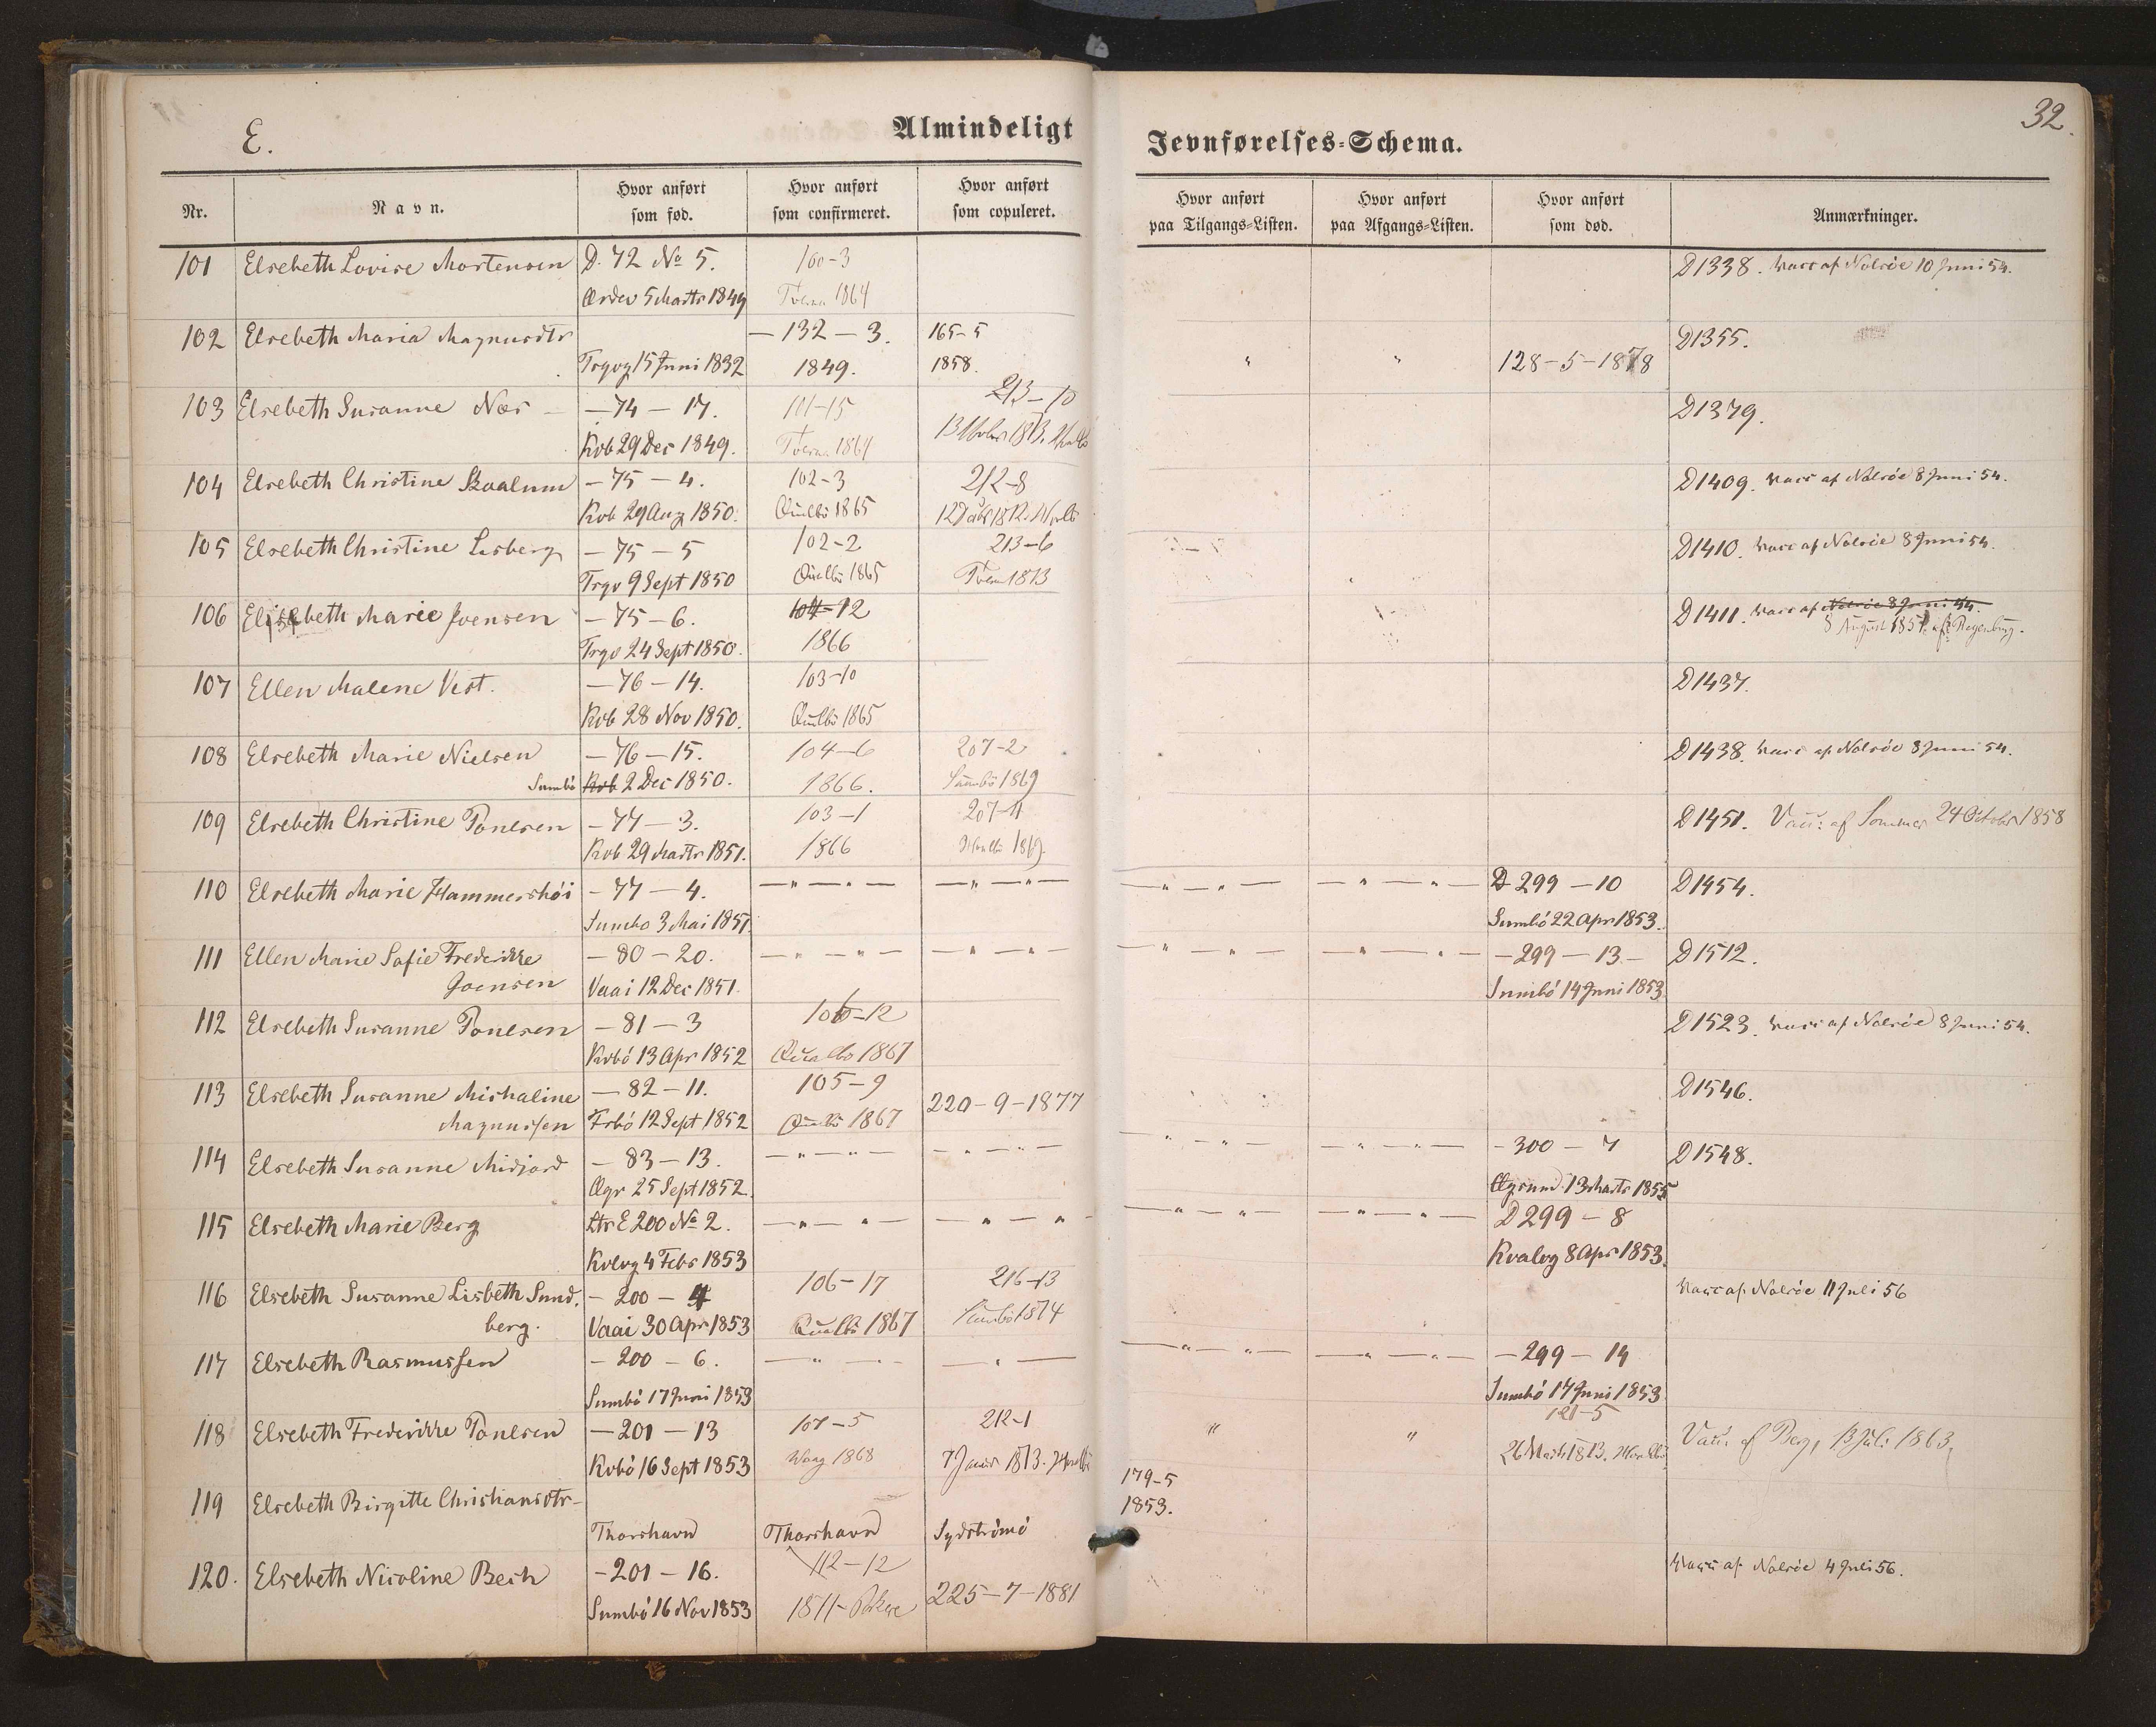 E.
Almindeligt
Jevnførelses-Schema.
32.
Nr.
Navn.
Hvor anført som fød.
Hvor anført som confirmeret.
Hvor anført som copuleret.
Hvor anført paa Tilgangs-Listen.
Hvor anført paa Afgangs-Listen.
Hvor anført som død.
Anmærkninger.
101 Elsebeth Lovise Mortensen D. 72 No 5. 100-3 D1338. Vacc af Nolsöe 10 Juni 54.
5 Marts 1849 Tveraa 1864
102 Elsebeth Maria Magnusdtr — 132 — 3. 165-5 D1355.
Trgvg 15 Juni 1832 1849. 1858. " " 128-5-1878
103 Elsebeth Susanne Næs — 74 — 17. 101-15 213-10 D1379.
Kvb 29 Dec 1849. Tveraa 1864
104 Elsebeth Christine Skaalum — 75 — 4. 102-3 212-8 D1409. Vacc af Nolsöe 8 Juni 54.
Kvb 29 Aug 1850. Qualbö 1865
105 Elsebeth Christine Lisberg — 75 — 5 102-2 213-6 D1410. Vacc af Nolsöe 8 Juni 54.
Trgv 9 Sept 1850 Qualbö 1865 Tveraa 1873
106 Elisabeth Marie Joensen — 75 — 6. 104-12 D1411. Vacc af Nolsöe 8 Juni 54.
Trgv 24 Sept 1850. 1866 8 August 1851 af Regenburg.
107 Ellen Malene Vest. — 76 — 14. 103-10 D1437.
Kvb 28 Nov 1850. Qualbö 1865
108 Elsebeth Marie Nielsen — 76 — 15. 104-6 207-2 D1438. Vacc af Nolsöe 8 Juni 54.
Sumbö Kvb 2 Dec 1850. 1866. Sumbö 1869
109 Elsebeth Christine Poulsen — 77 — 3. 103-1 207-11 D1451. Vacc: af Sommer 24 October 1858
Kvb 29 Marts 1851. 1866 Hvalbö 1869.
110 Elsebeth Marie Hammershöi — 77 — 4. — " — " — — " — " — — " — " — — " — " — D 299 — 10 D1454.
Sumbo 3 Mai 1851. Sumbö 22 Apr 1853.
111 Ellen Marie Sofie Frederikke — 80 — 20. — " — " — — " — " — — " — " — — " — " — — 299 — 13 — D1512.
Joensen Vaai 12 Dec 1851. Sumbö 14 Juni 1853
112 Elsebeth Susanne Poulsen — 81 — 3 106-12 D1523. Vacc af Nolsöe 8 Juni 54.
Kvbö 13 Apr 1852 Qualbo 1867
113 Elsebeth Susanne Michaline — 82 — 11. 105-9 220-9-1877 D1546.
Magnussen Frbö 12 Sept 1852 Qualbö 1867
114 Elsebeth Susanne Midjord — 83 — 13. — " — " — — " — " — — " — " — — " — " — — 300 — 7 D1548.
Ægr 25 Sept 1852. 13 Marts 1855
115 Elsebeth Marie Berg Ltr E 200 No 2. — " — " — " — " — " — " — — " — " — D 299 — 8
Kvlvg 4 Febr 1853 Kvalvg 8 Apr 1853.
116 Elsebeth Susanne Lisbeth Sund- — 200 — 4 106-17 216-13 Vacc af Nolsöe 11 Juli 56
berg. Vaai 30 Apr 1853 Qualbö 1867 Sumbö 1874
117 Elsebeth Rasmussen — 200 — 6. — " — " — — " — — " — " — — " — " — — 299 — 14
Sumbö 17 Juni 1853 Sumbö 17 Juni 1853.
118 Elsebeth Frederikke Poulsen — 201 — 13 107-5 212-1 " " 121-5 Vacc. af Berg, 13 Juli 1863,
Kvbö 16 Sept 1853 Waag 1868 7 Januar 1873. Hvalbö 26 Marts 1873. Hvalbö
119 Elsebeth Birgitte Christiansdtr- 179-5
Thorshavn Thorshavn Sydströmö 1853.
120. Elsebeth Nicoline Bech — 201 — 16. 112-12 Vacc af Nolsöe 4 Juli 56.
Sumbö 16 Nov 1853 1871 225-7-1881